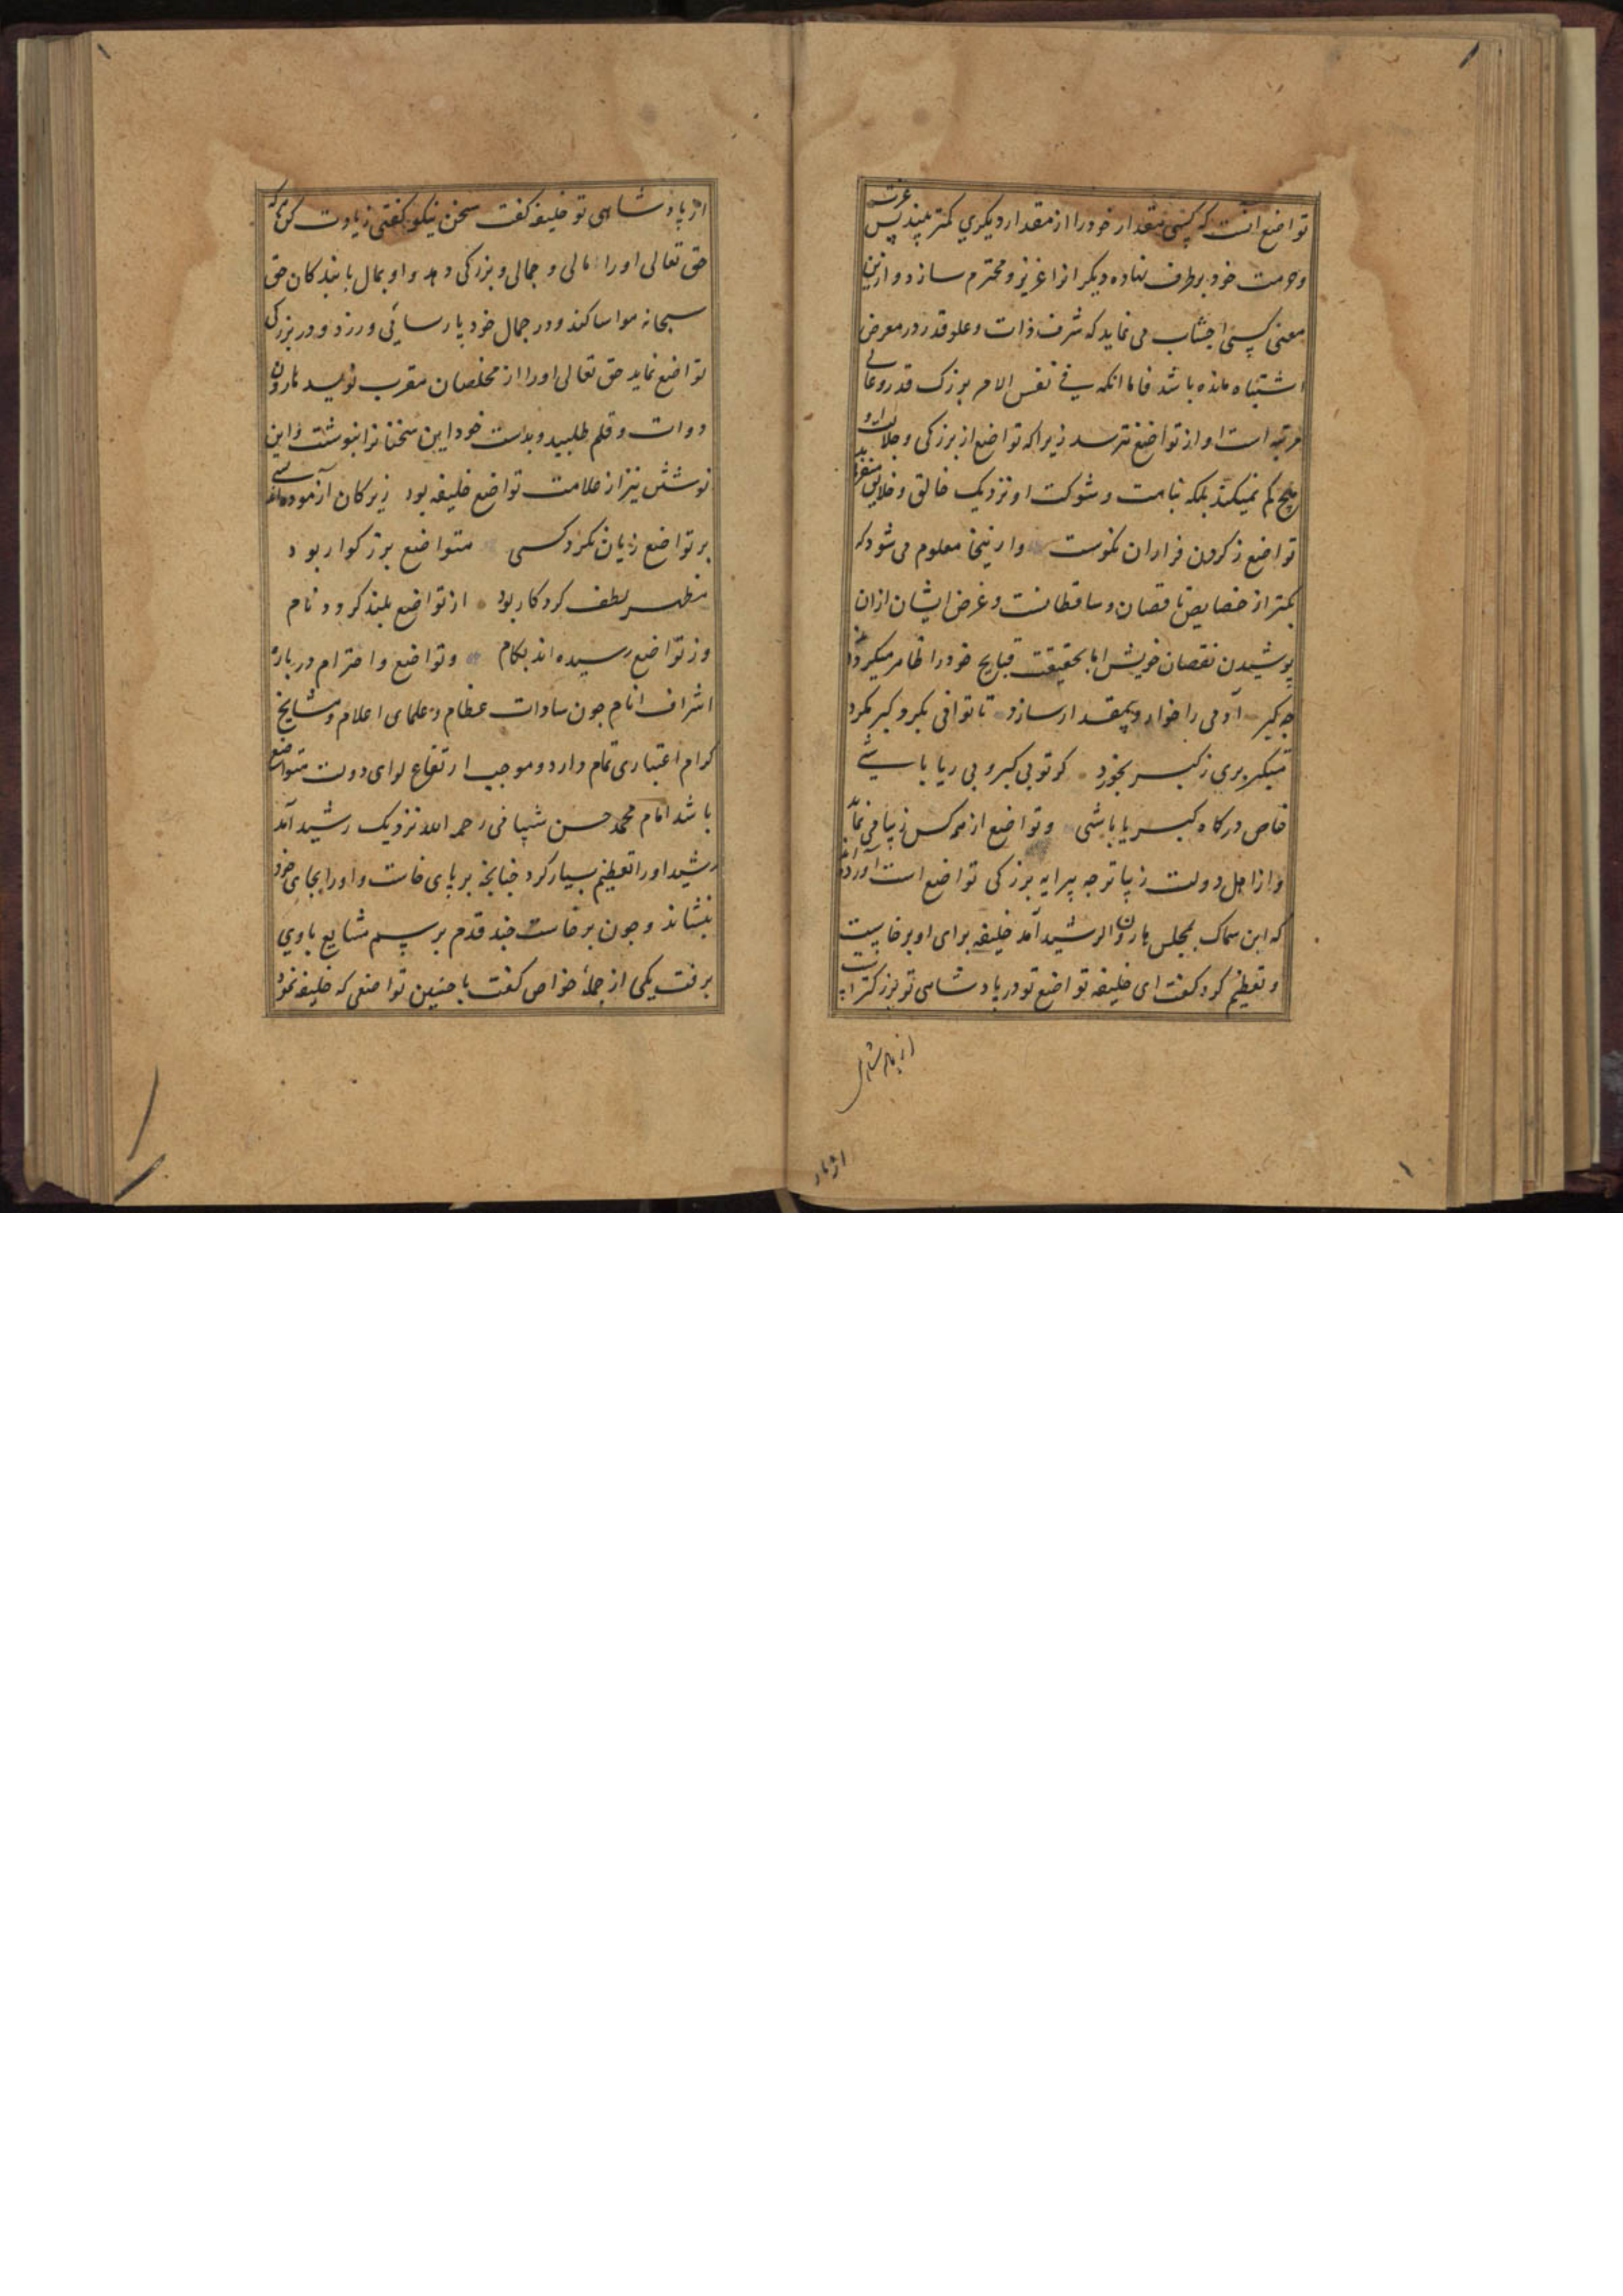 تواضع آنست که کسی مقدار خود را از مقدار دیگری کمتر بیند پس عزت
و حرمت خود بر طرف نهاده دیگرانرا عزیز و محترم سازد و ازین
معنی کسی اجتناب می نماید که شرف ذات و علو قدر در معرض
اشتباه مانده باشد فاما انکه فی نفس الامر بزرک قدر و عالی
مرتبه است او از تواضع نترسد زیرا که تواضع از بزرکی و جلالت او
هیچ کم نمیکند بلکه نباهت و شوکت او نزدیک خالق و خلایق
تواضع ز کردن فرازان نکوست وازینجا معلوم می شود که
تکبر از خصایص ناقصان و ساقطانست و غرض ایشان ازان
پوشیدن نقصان خویش اما بحقیقت قبایح خود را ظاهر میکردانند
چه کبر آدمی را خوار و بیمقدار سازد تا توانی بکرد کبر مکرد
متکبر بری ز کبر نخورد کر تو بی کبر و بی ریا باشی
خاص درکاه کبریا باشی و تواضع از هر کس زیبا می نماید
و از اهل دولت زیباتر چه پیرایه بزرکی تواضع است آورده اند
که ابن سماک بمجلس هارون الرشید آمد خلیفه برای او برخاست
و تعظیم کرد کفت ای خلیفه تواضع تو در پادشاهی تو بزرکتر است
از پادشاهی
از پاد
از پادشاهی تو خلیفه کفت سخن نیکو کفتی زیادت کن
حق تعالی او را مالی و جمالی و بزرکی دهد و او بمال با بندکان حق
سبحانه مواسا کند و در جمال خود پارسائی ورزد و در بزرکی
تواضع نماید حق تعالی او را از مخلصان مقرب نویسد هارون
دوات و قلم طلبید و بدست خود این سخنانرا بنوشت و این
نوشتن نیز از علامت تواضع خلیفه بود زیرکان آزموده اند
بر تواضع زیان نکرد کسی متواضع بزرکوار بود
مظهر لطف کردکار بود از تواضع بلند کردد نام
وز تواضع رسیده اند بکام و تواضع و احترام درباره
اشراف انام چون سادات عظام و علمای اعلام و مشایخ
کرام اعتباری تمام دارد و موجب ارتفاع لوای دولت متواضع
باشد امام محمد حسن شیبانی رحمه الله نزدیک رشید آمد
رشید او را تعظیم بسیار کرد چنانچه بر پای خاست و او را بجای خود
بنشاند و چون برخاست چند قدم برسم مشایع باوی
برفت یکی از جمله خواص کفت با چنین تواضعی که خلیفه نمود